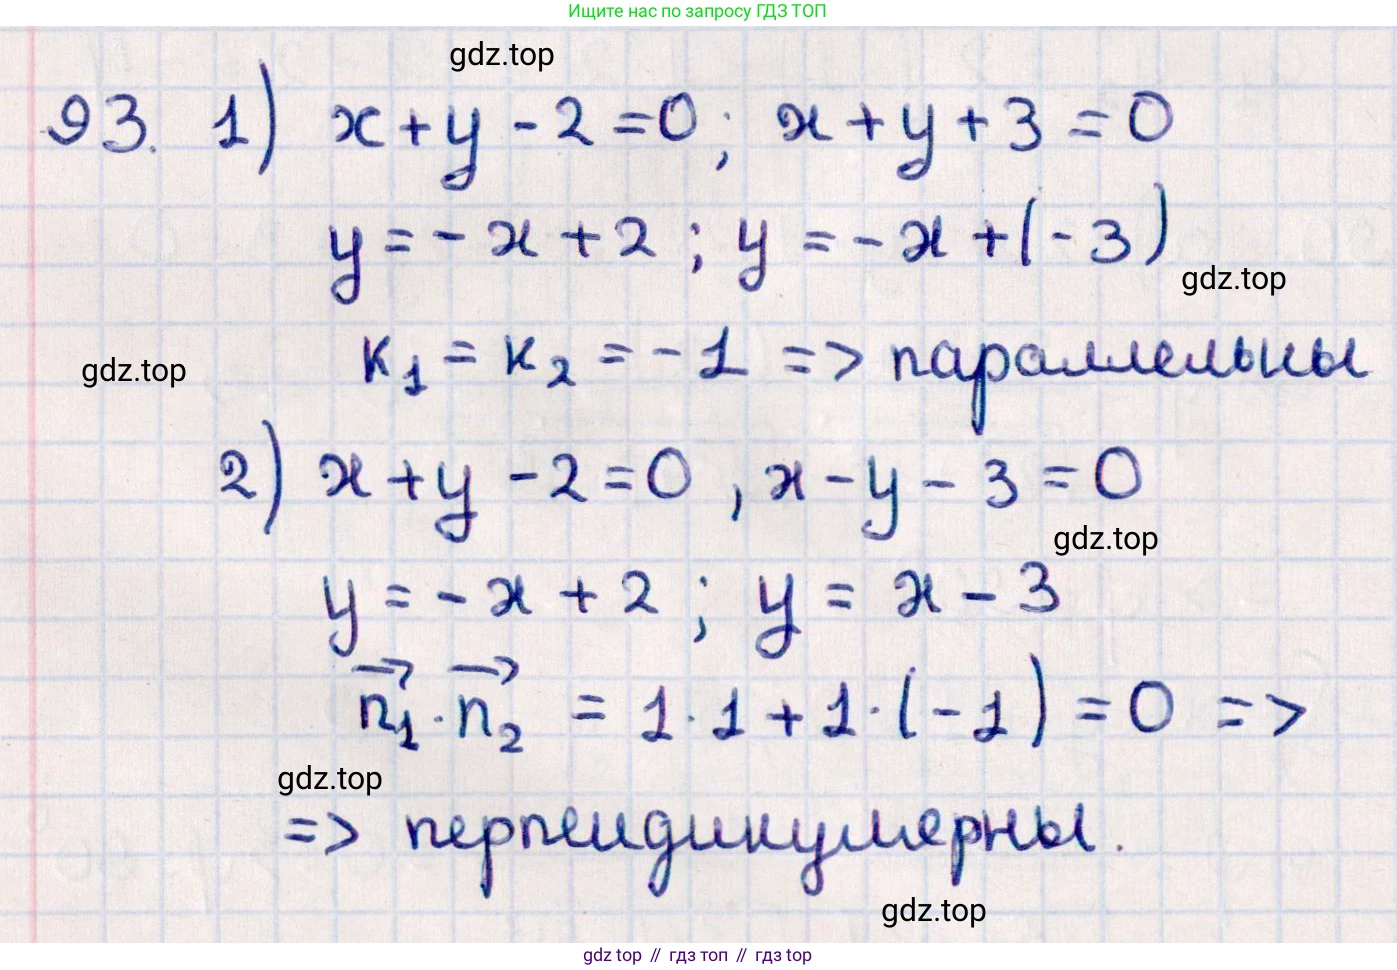 Ищите нас по запросу ГДЗ ТОП
gdz.top
93. 1) x + y - 2 = 0; x + y + 3 = 0
y = - x + 2 ; y = - x + (- 3)
gdz.top
gdz.top
к₁ = к₂ = - 1 => параллельны
2) x + y - 2 = 0 , x - y - 3 = 0
gdz.top
y = - x + 2 ; y = x - 3
n₁⃗ · n₂⃗ = 1 · 1 + 1 · (- 1) = 0 =>
gdz.top
=> перпендикулярны.
gdz.top
gdz top // гдз топ // gdz top